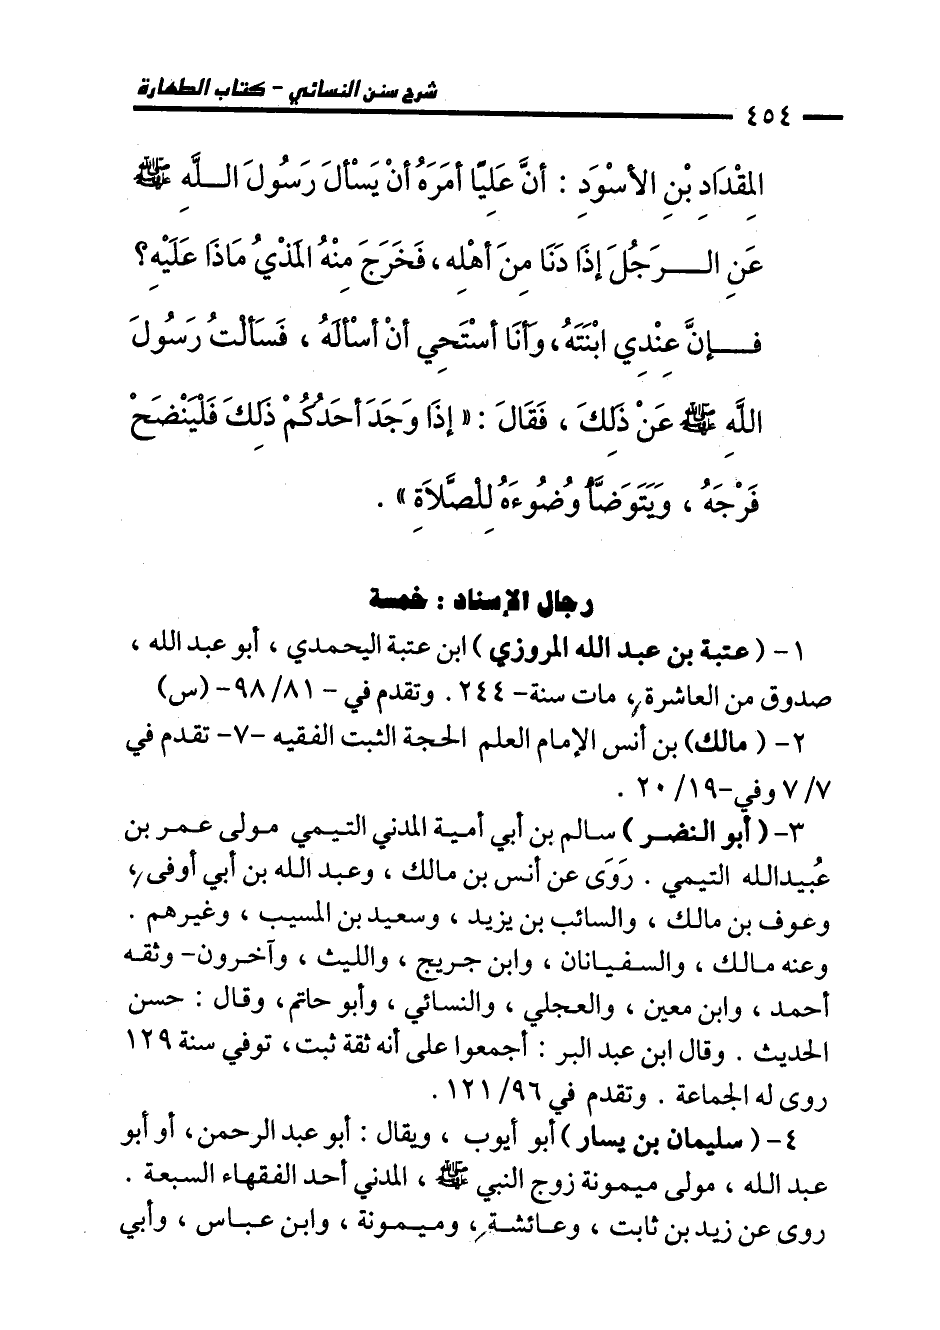 شرح سنن النسائي - كتاب الطهارة
٤٥٤
المِقْدَادِ بْنِ الأسْوَدِ : أنَّ عَلِيّاً أمَرَهُ أنْ يَسْألَ رَسُولَ اللَّهِ ﷺ
عَنِ الرَجُلِ إذَا دَنَا مِنَ أهْلِهِ ، فَخَرَجَ مِنْهُ المَذْيُ مَاذَا عَلَيْهِ؟
فَإنَّ عِنْدِي ابْنَتَهُ، وَأنَا أسْتَحِي أنْ أسْألَهُ ، فَسَألْتُ رَسُولَ
اللَّهِ ﷺ عَنْ ذَلِكَ ، فَقَالَ : « إذَا وَجَدَ أحَدُكُمْ ذَلِكَ فَلْيَنْضَحْ
فَرْجَهُ ، وَيَتَوَضَّأْ وُضُوءَهُ لِلصَّلاَةِ » .
رجال الإسناد : خمسة
١- ( عتبة بن عبد الله المروزي ) ابن عتبة اليحمدي ، أبو عبد الله ،
صدوق من العاشرة ، مات سنة- ٢٤٤ . وتقدم في - ٩٨/٨١- (س)
٢- ( مالك) بن أنس الإمام العلم الحجة الثبت الفقيه -٧- تقدم في
٧/٧ وفي-٢٠/١٩ .
٣- ( أبو النضر ) سالم بن أبي أمية المدني التيمي مولى عمر بن
عُبيدالله التيمي . رَوَى عن أنس بن مالك ، وعبد الله بن أبي أوفى ،
وعوف بن مالك ، والسائب بن يزيد ، وسعيد بن المسيب ، وغيرهم .
وعنه مالك ، والسفيانان ، وابن جريج ، والليث ، وآخرون- وثقه
أحمد ، وابن معين ، والعجلي ، والنسائي ، وأبو حاتم، وقال : حسن
الحديث . وقال ابن عبد البر : أجمعوا على أنه ثقة ثبت، توفي سنة ١٢٩
روى له الجماعة . وتقدم في ١٢١/٩٦ .
٤- ( سليمان بن يسار ) أبو أيوب ، ويقال : أبو عبد الرحمن، أو أبو
عبد الله ، مولى ميمونة زوج النبي ﷺ ، المدني أحد الفقهاء السبعة .
روى عن زيد بن ثابت ، وعائشة ، وميمونة ، وابن عباس ، وأبي